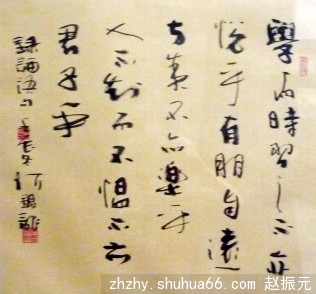 學而時習之不亦
悦乎有朋自遠
方来不亦樂乎
人不知而不愠不亦
君子乎
論語句
zhzhy.shuhua66.com 赵振元